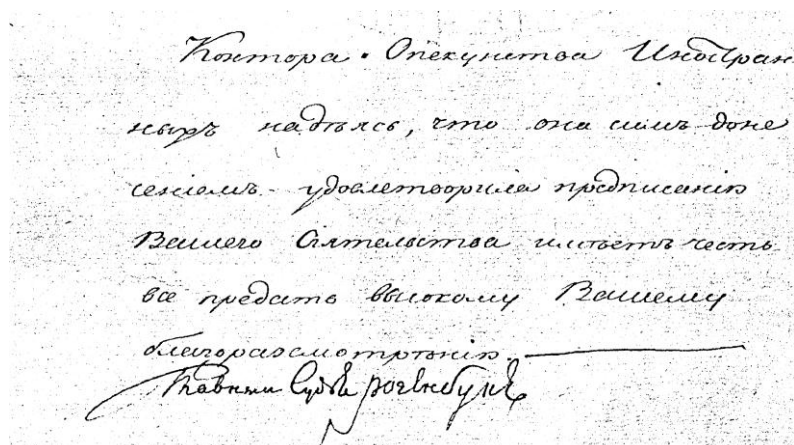 Контора Опекунства Иностран
ныхъ надѣясь, что она симъ доне
сеніемъ удовлетворила предписанію
Вашего Сіятельства имѣетъ честь
все предать высокому Вашему
благоразсмотрѣнію
Главный Судья